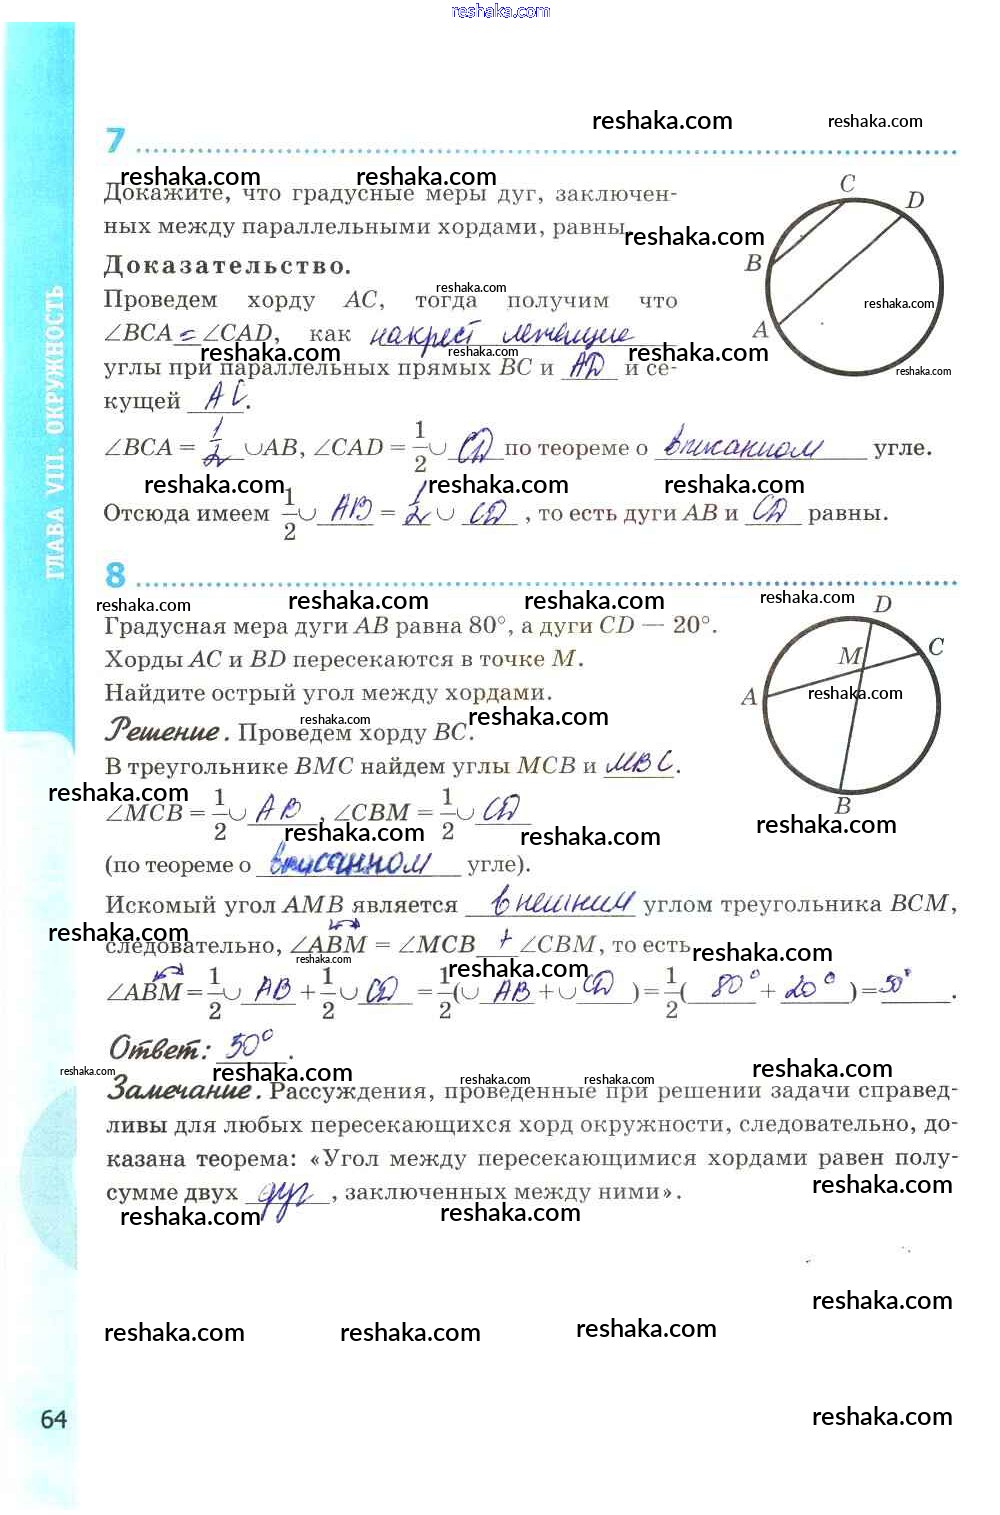 reshaka.com
reshaka.com reshaka.com
7
reshaka.com reshaka.com
Докажите, что градусные меры дуг, заключен-
ных между параллельными хордами, равны.
reshaka.com
Доказательство.
reshaka.com
Проведем хорду AC, тогда получим что
∠BCA = ∠CAD, как накрест лежащие
reshaka.com reshaka.com reshaka.com
углы при параллельных прямых BC и AD и се-
кущей AC.
C D B A
reshaka.com
reshaka.com
∠BCA = 1/2 ∪AB, ∠CAD = 1/2 ∪ CD по теореме о вписанном угле.
reshaka.com reshaka.com reshaka.com
Отсюда имеем 1/2 ∪ AB = 1/2 ∪ CD, то есть дуги AB и CD равны.
8
reshaka.com reshaka.com reshaka.com reshaka.com
Градусная мера дуги AB равна 80°, а дуги CD — 20°.
Хорды AC и BD пересекаются в точке M.
Найдите острый угол между хордами.
reshaka.com reshaka.com
Решение. Проведем хорду BC.
В треугольнике BMC найдем углы MCB и MBC.
D C M A B
reshaka.com
reshaka.com
∠MCB = 1/2 ∪ AB, ∠CBM = 1/2 ∪ CD
reshaka.com reshaka.com reshaka.com
(по теореме о вписанном угле).
Искомый угол AMB является внешним углом треугольника BCM,
reshaka.com
следовательно, ∠ABM = ∠MCB + ∠CBM, то есть
reshaka.com reshaka.com reshaka.com
∠ABM = 1/2 ∪ AB + 1/2 ∪ CD = 1/2 (∪ AB + ∪ CD) = 1/2 (80° + 20°) = 50°.
Ответ: 50°.
reshaka.com reshaka.com reshaka.com reshaka.com reshaka.com
Замечание. Рассуждения, проведенные при решении задачи справед-
ливы для любых пересекающихся хорд окружности, следовательно, до-
казана теорема: «Угол между пересекающимися хордами равен полу-
сумме двух дуг, заключенных между ними».
reshaka.com
reshaka.com reshaka.com
reshaka.com
reshaka.com reshaka.com reshaka.com
reshaka.com
64
ГЛАВА VIII. ОКРУЖНОСТЬ